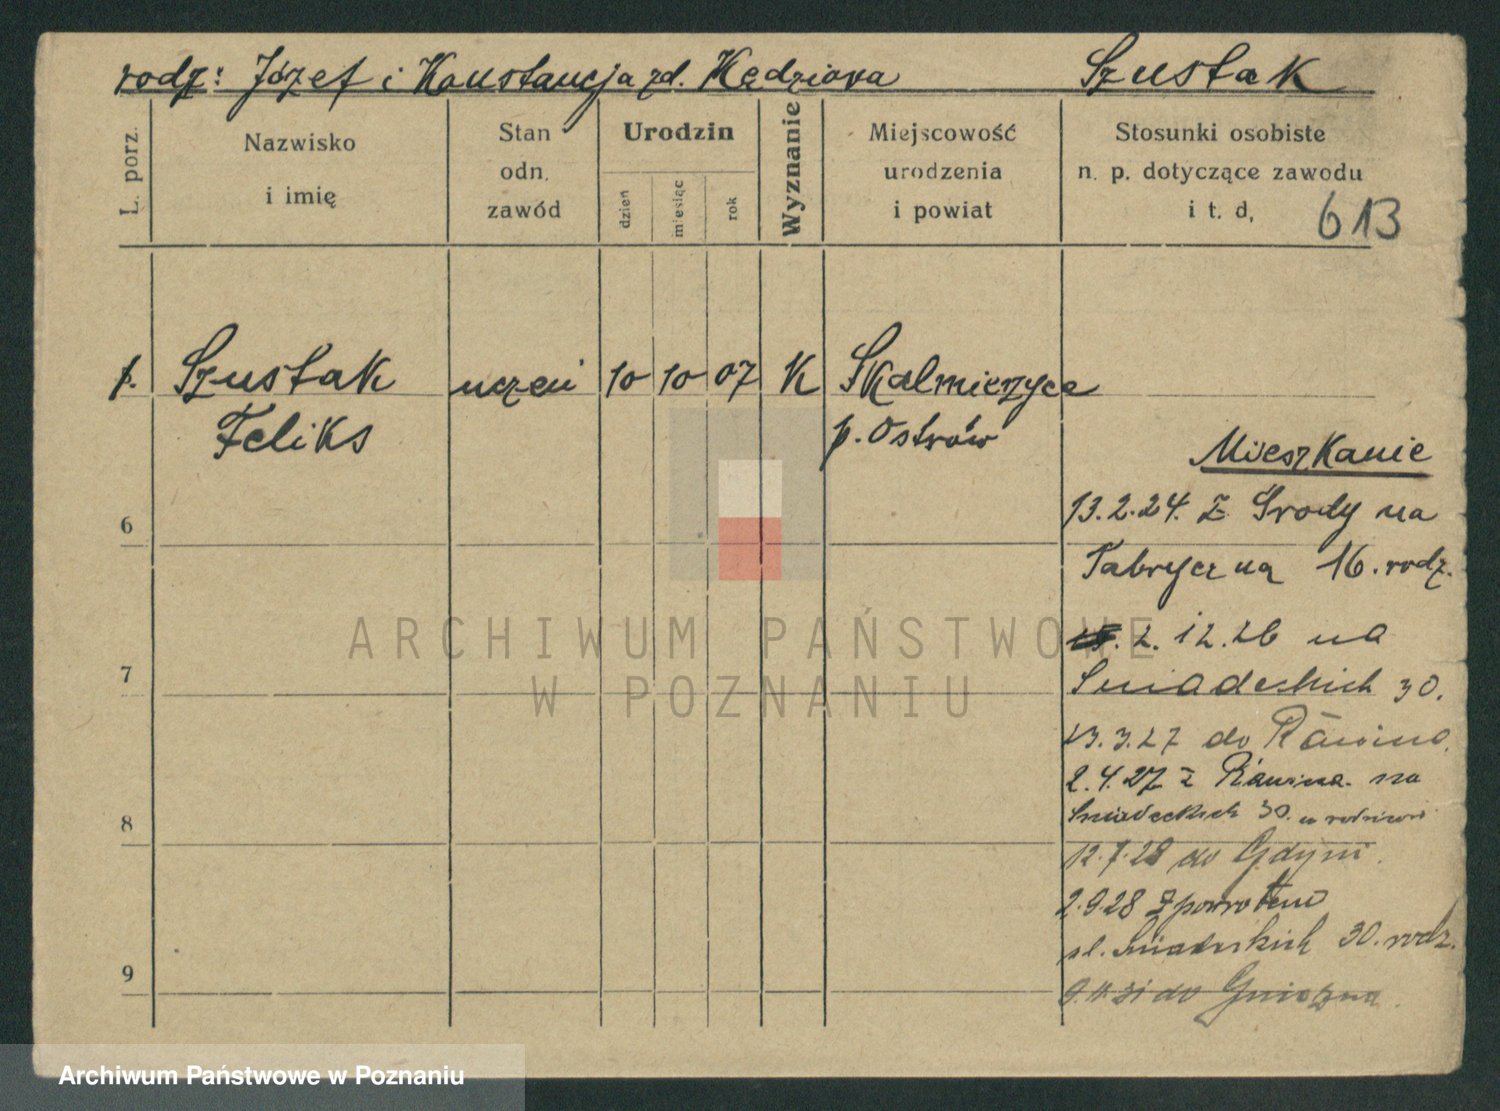 rodz: Józef i Konstancja zd. Kędziora Szustak
L. porz.
Nazwisko
i imię
Stan
odn.
zawód
Urodzin
dzień
miesiąc
rok
Wyznanie
Miejscowość
urodzenia
i powiat
Stosunki osobiste
n. p. dotyczące zawodu
i t. d,
613
1. Szustak uczeń 10 10 07 K Skalmierzyce
Feliks p. Ostrów
Mieszkanie
13.2.24. z Środy na
Fabryczną 16. rodz.
2. 12.26 na
Śniadeckich 30.
23.3.27 do Rawicza
2.4.27 z Rawicza na
Śniadeckich 30. u rodziców
12.7.28 do Gdyni.
2.9.28 z powrotem
ul. Śniadeckich 30. rodz.
do Gniezna.
6
7
8
9
ARCHIWUM PAŃSTWOWE
W POZNANIU
Archiwum Państwowe w Poznaniu